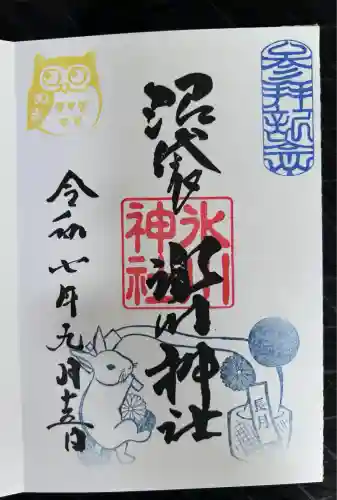 参拝記念
沼袋
氷川神社
氷川
神社
令和七年九月十三日
長月